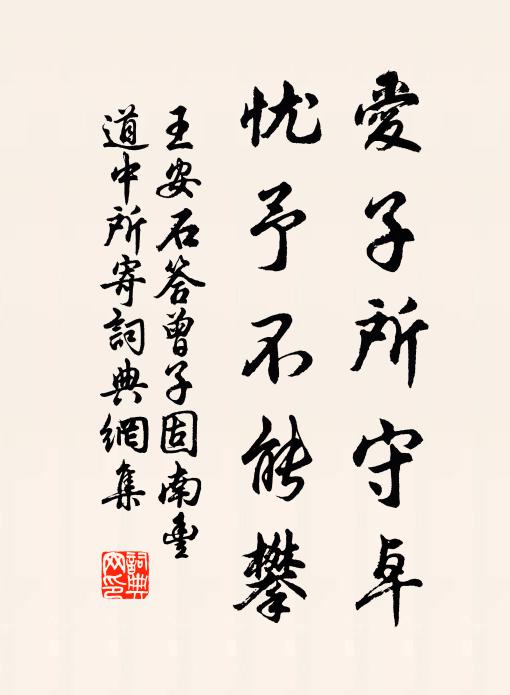 愛子所守卓
忧予不能攀
王安石答曾子固南豊
道中所寄詞典網集
詞典
网印